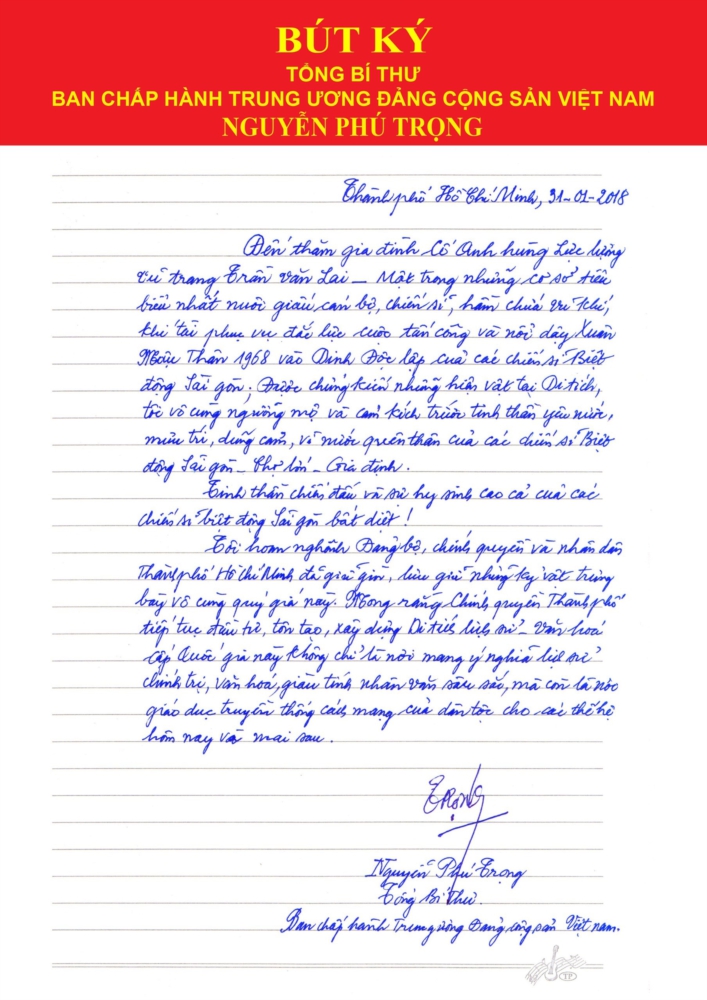 BÚT KÝ
TỔNG BÍ THƯ
BAN CHẤP HÀNH TRUNG ƯƠNG ĐẢNG CỘNG SẢN VIỆT NAM
NGUYỄN PHÚ TRỌNG
Thành phố Hồ Chí Minh, 31-01-2018
Đến thăm gia đình Cố Anh hùng Lực lượng
vũ trang Trần Văn Lai – Một trong những cơ sở tiêu
biểu nhất nuôi giấu cán bộ, chiến sĩ, hầm chứa vũ khí,
khí tài phục vụ đắc lực cuộc tấn công và nổi dậy Xuân
Mậu Thân 1968 vào Dinh Độc lập của các chiến sĩ Biệt
động Sài gòn; Được chứng kiến những hiện vật tại Di tích,
tôi vô cùng ngưỡng mộ và cảm kích trước tinh thần yêu nước,
mưu trí, dũng cảm, vì nước quên thân của các chiến sĩ Biệt
động Sài gòn – Chợ lớn – Gia định.
Tinh thần chiến đấu và sự hy sinh cao cả của các
chiến sĩ biệt động Sài gòn bất diệt!
Tôi hoan nghênh Đảng bộ, chính quyền và nhân dân
Thành phố Hồ Chí Minh đã giữ gìn, lưu giữ những kỷ vật trưng
bày vô cùng quý giá này. Mong rằng Chính quyền Thành phố
tiếp tục đầu tư, tôn tạo, xây dựng Di tích lịch sử – Văn hoá
cấp Quốc gia này không chỉ là nơi mang ý nghĩa lịch sử
chính trị, văn hoá, giàu tính nhân văn sâu sắc, mà còn là nơi
giáo dục truyền thống cách mạng của dân tộc cho các thế hệ
hôm nay và mai sau.
TRỌNG
Nguyễn Phú Trọng
Tổng Bí thư
Ban chấp hành Trung ương Đảng cộng sản Việt nam.
TP